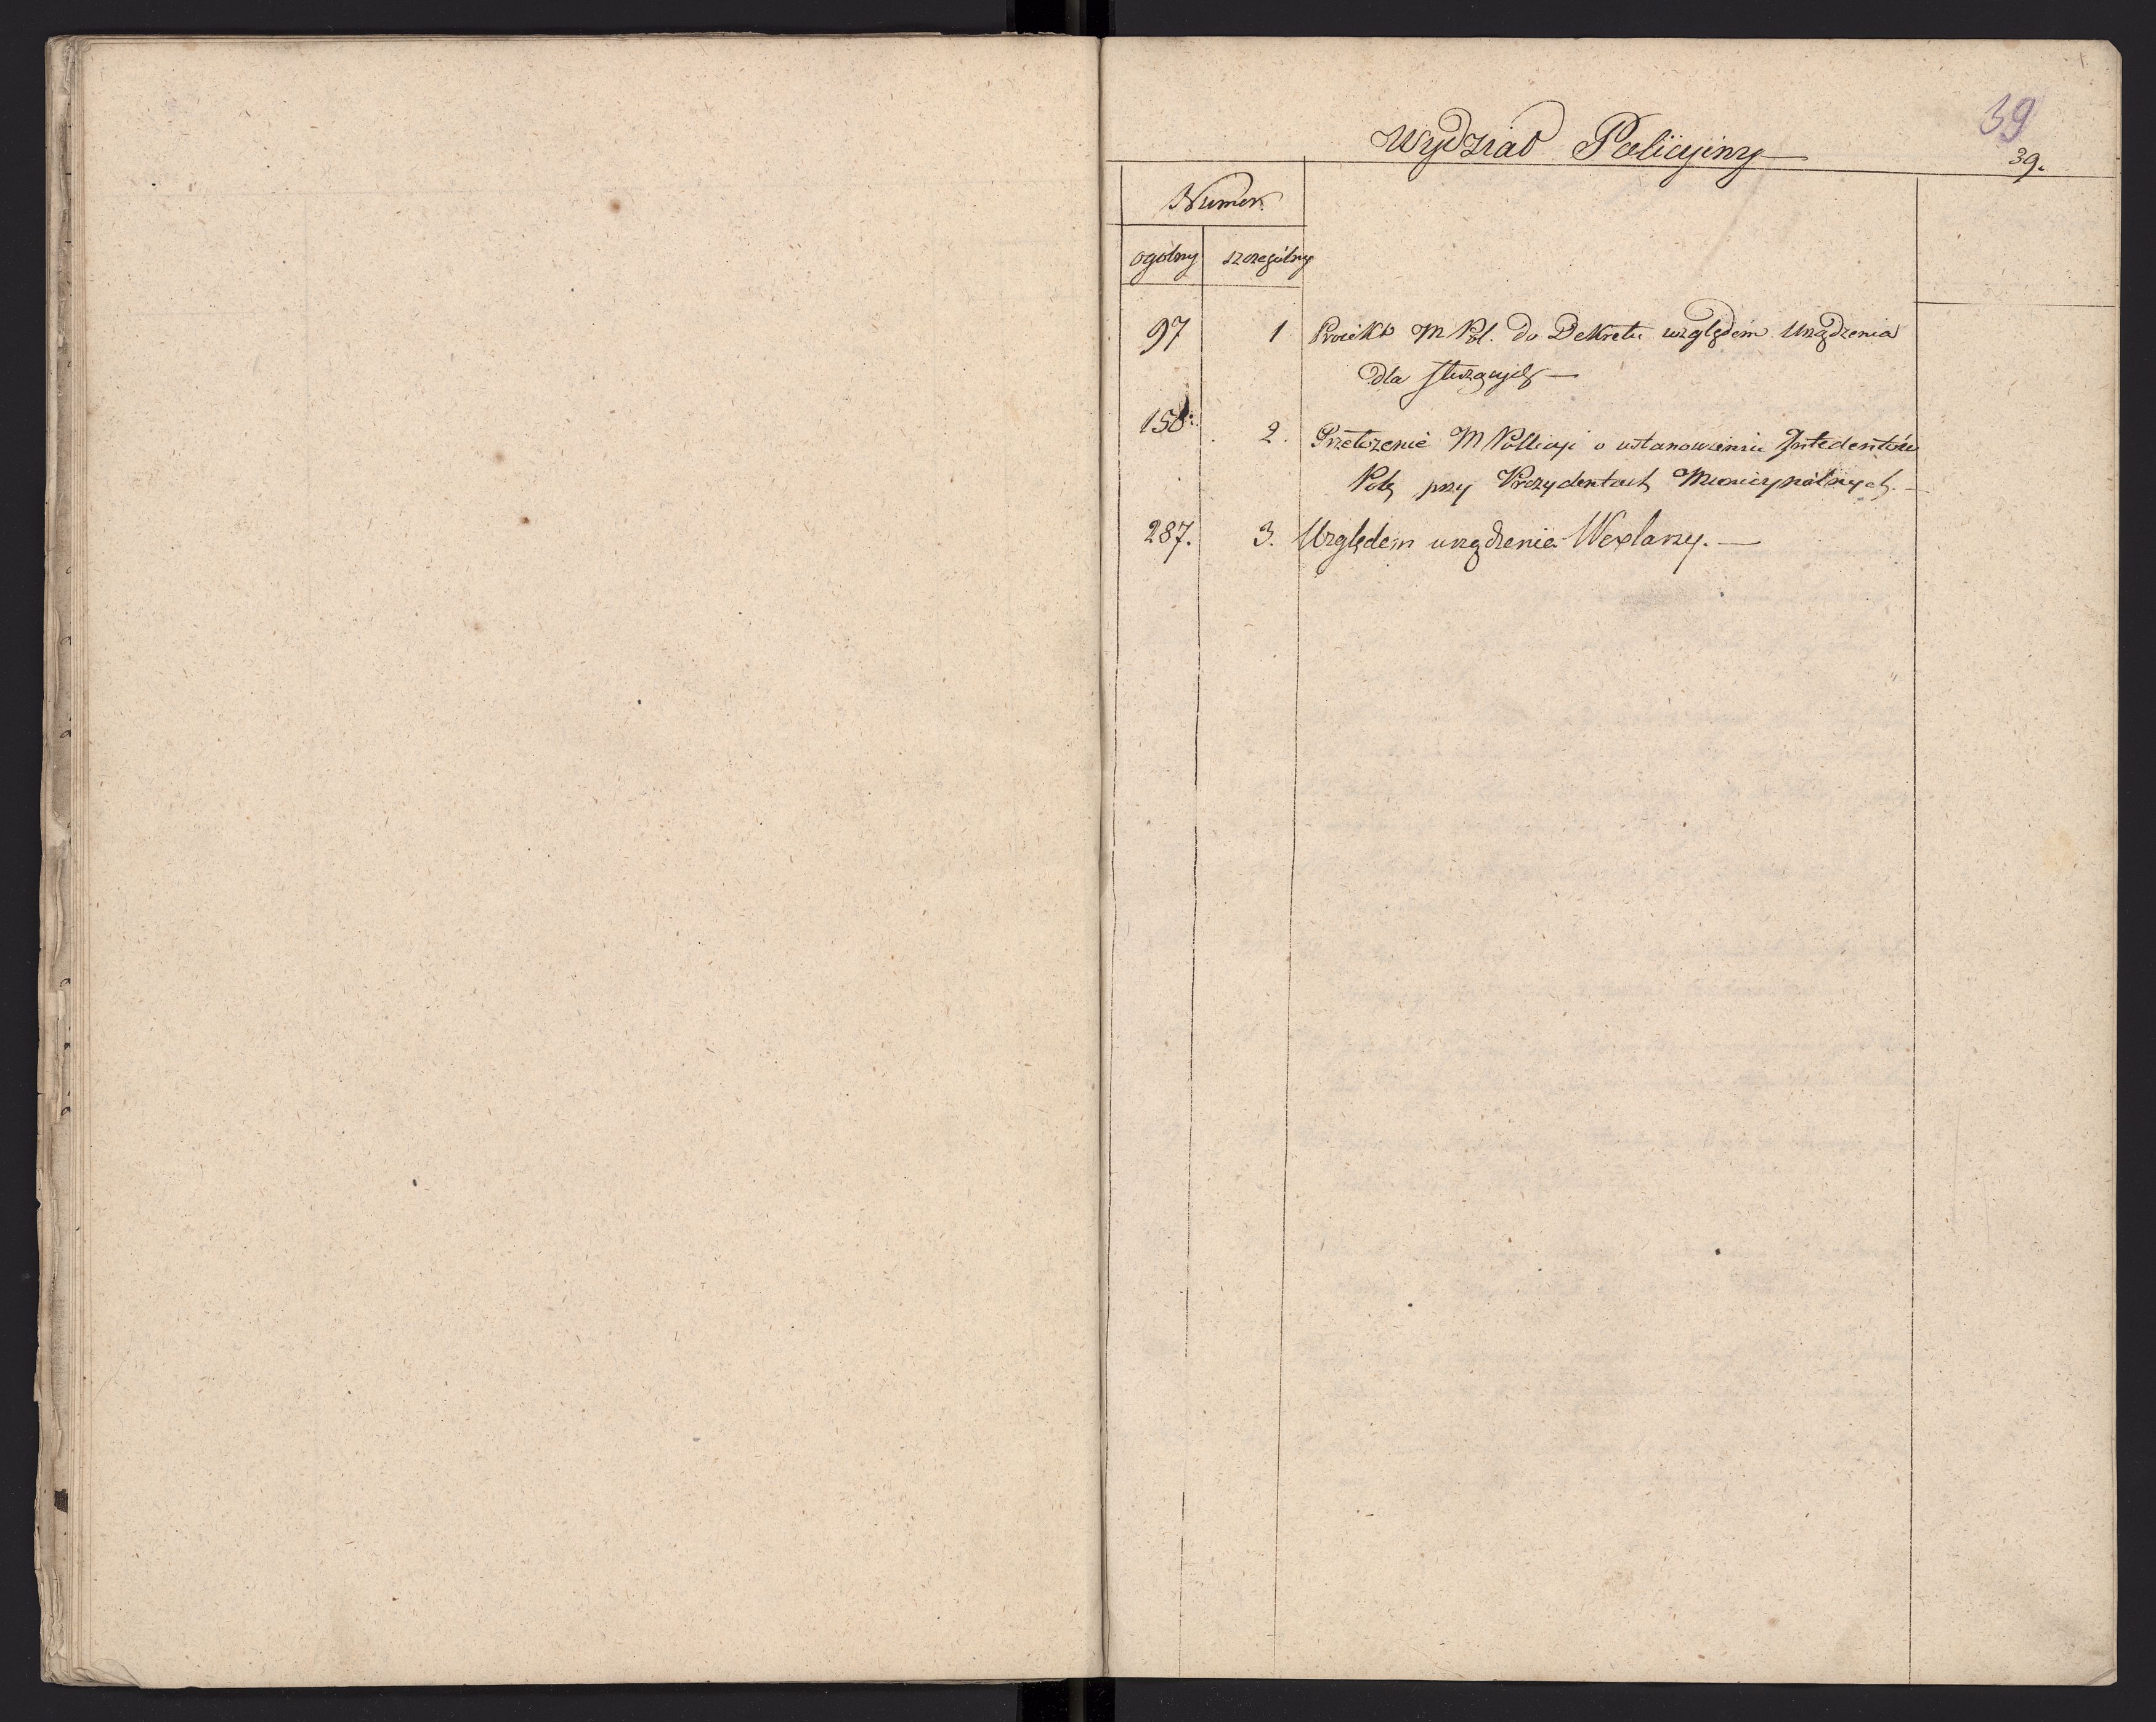 39
Wydział Policyiny
39.
Numer.
ogólny szczególny
97 1 Proiekt M Pol. do Dekretu względem Urządzenia
dla służących
2. Przełożenie M Policyi o ustanowieniu Intedentów
przy Prezydentach Municypalnych.
287. 3. Względem urządzenia Wexlarzy.